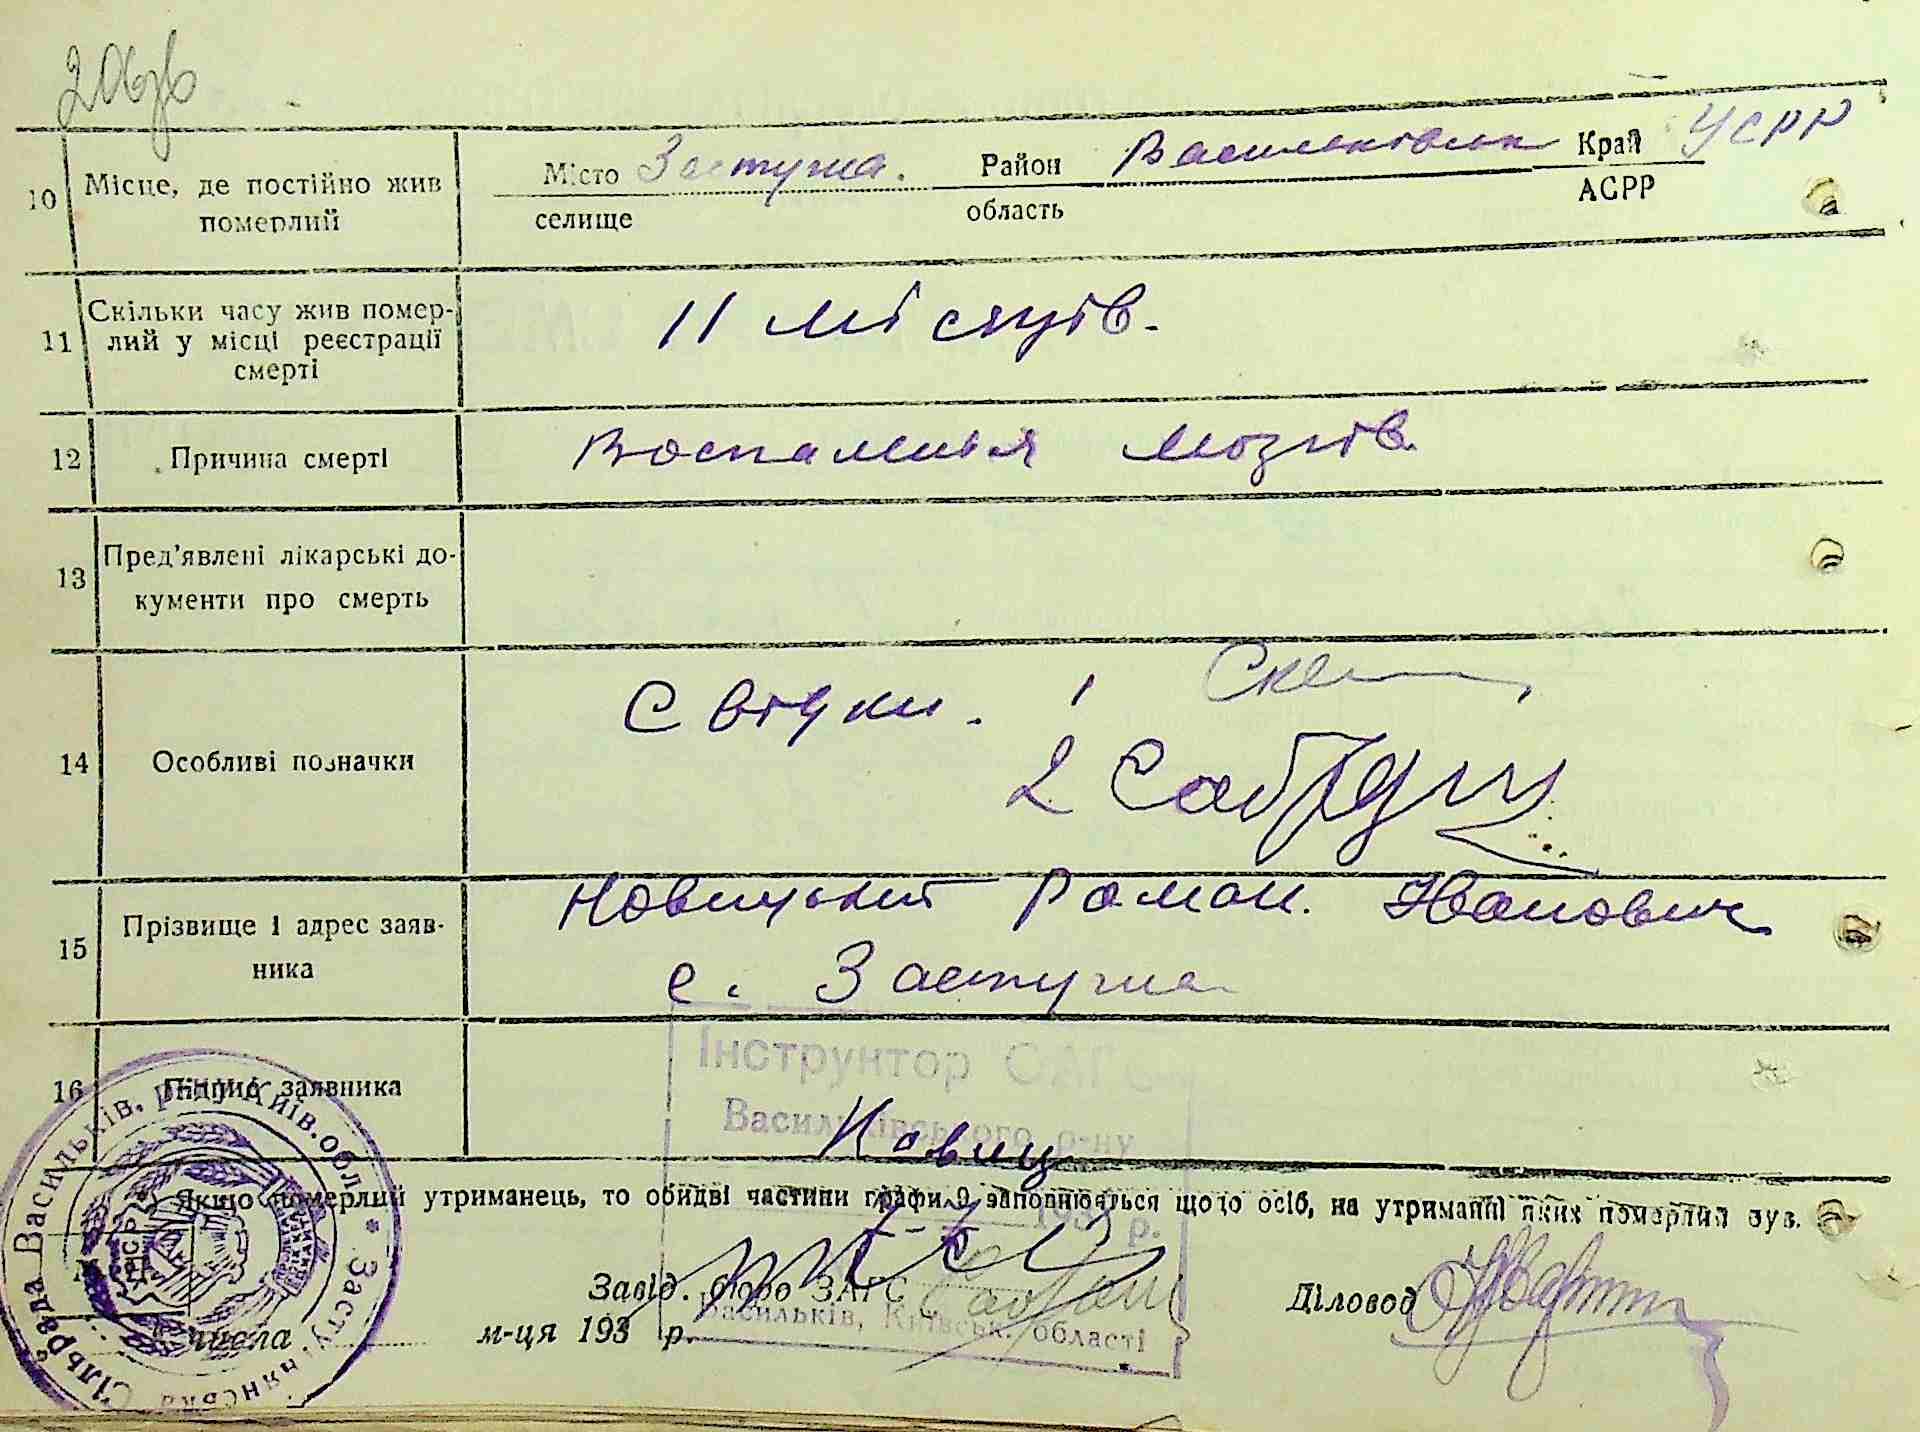 206зв
10 Місце, де постійно жив Місто Застугна. Район Васильківськ Край УСРР
померлий селище область АСРР
11 Скільки часу жив помер-
лий у місці реєстрації
смерті
11 місяців.
12 Причина смерті Воспаления мозгів.
13 Пред’явлені лікарські до-
кументи про смерть
14 Особливі позначки
Свідки. 1
2
15 Прізвище і адрес заяв-
ника
Новицький Роман. Іванович
с. Застугна
16 Підпис заявника Новиц
Інструктор ОАГС
Васильківського р-ну
193 р.
Васильків, Київськ. області
*) Якщо померлий утриманець, то обидві частини графи 9 заповнюється щодо осіб, на утриманні яких померлий був.
М. П.
Завід. бюро ЗАГС
Діловод
числа м-ця 193 р.
Застугнянська Сільрада Васильків. р-ну Київ. обл. *